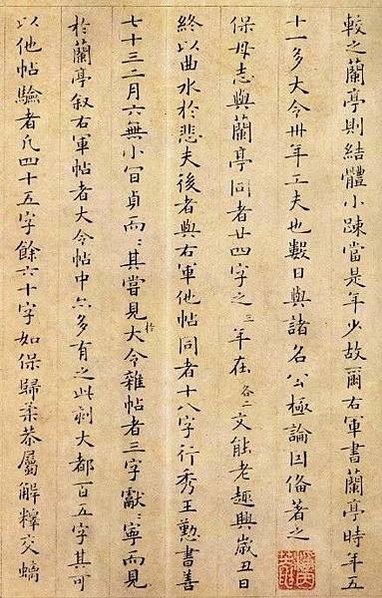 較之蘭亭則結體小踈當是年少故爾右軍書蘭亭時年五
十一多大令卅年工夫也數日與諸名公極論因俻著之
保母志與蘭亭同者廿四字之三年在各二文能老趣興歲丑日
終以曲水於悲夫後者與右軍他帖同者十八字行秀王懃書善
七十三二月六無小冒貞而〻其嘗見於大令雜帖者三字獻〻寧而見
於蘭亭叙右軍帖者大令帖中亦多有之此刻大都百五字其可
以他帖驗者凡四十五字餘六十字如保歸柔恭屬解釋交螭